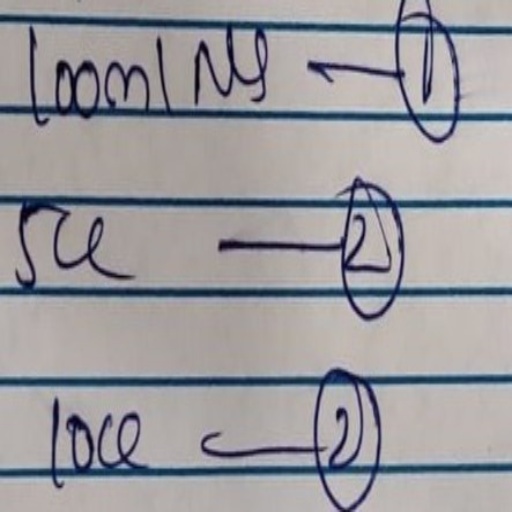 100ml NS — 1
5cc — 2
10cc — 2